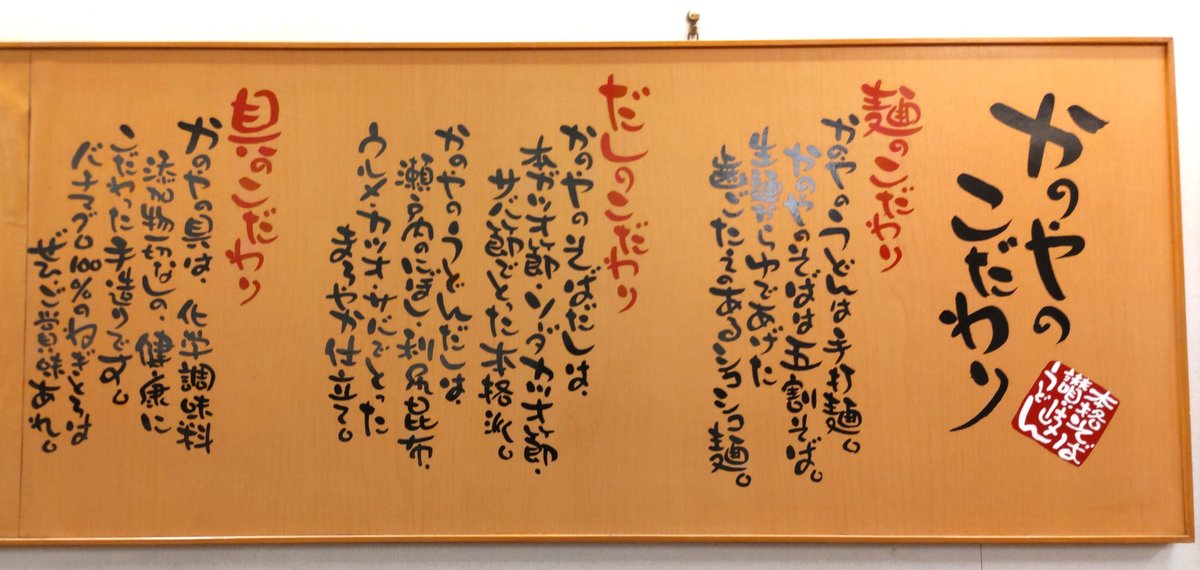 かのやの
こだわり
本格そば
讃岐
うどん
麺のこだわり
かのやのうどんは手打麺。
かのやのそばは五割そば。
生麺からゆであげた
歯ごたえのあるシコシコ麺。
だしのこだわり
かのやのそばだしは、
本ガツオ節・ソーダガツオ節・
サバ節でとった本格派。
かのやのうどんだしは、
瀬戸内のにぼし、利尻昆布、
ウルメ・カツオ・サバでとった
まろやか仕立て。
具のこだわり
かのやの具は、化学調味料
添加物一切なしの、健康に
こだわった手造りです。
バチマグロ100%のねぎとろは
ぜひご賞味あれ。